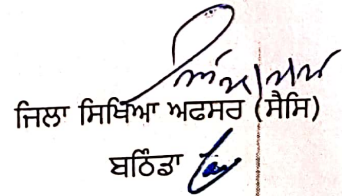 ਜਿਲਾ ਸਿਖਿਆ ਅਫਸਰ (ਸੈਸਿ)
ਬਠਿੰਡਾ